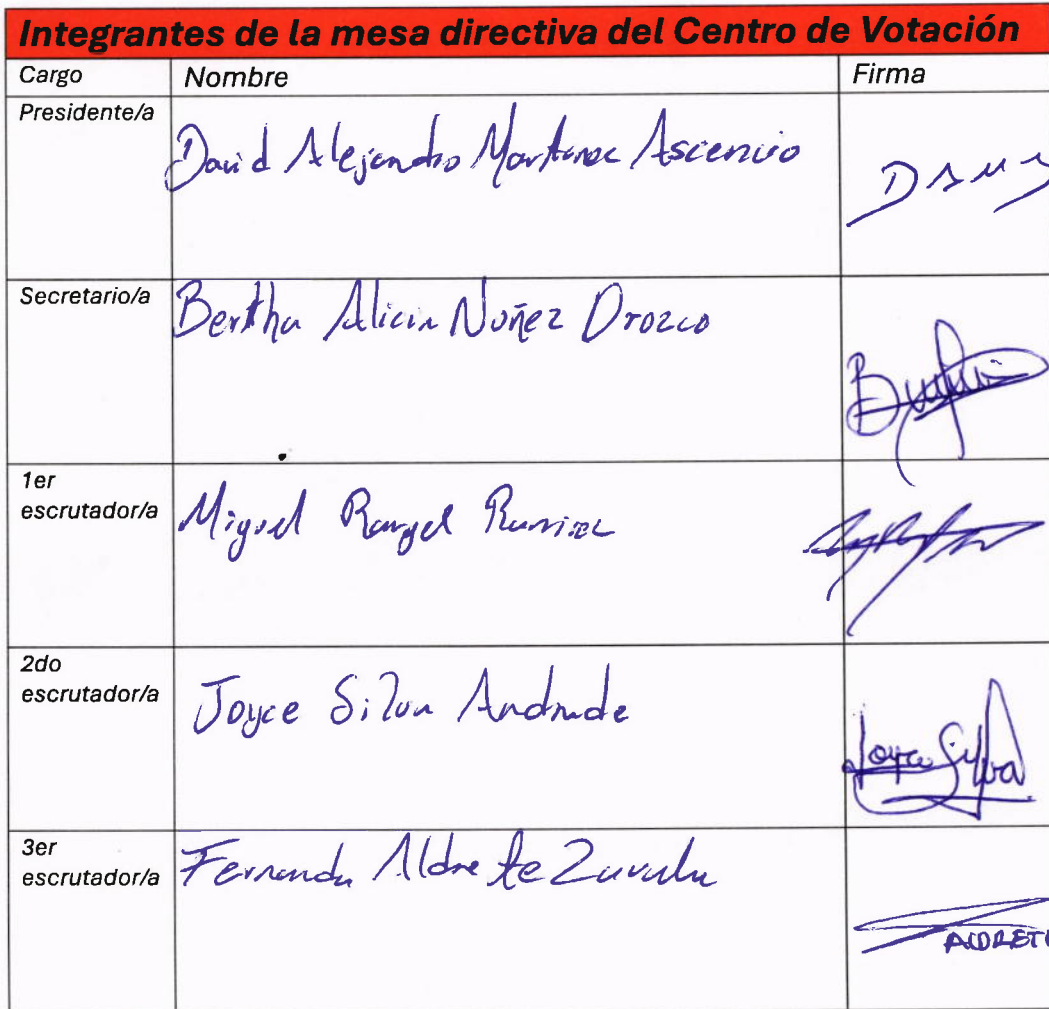 Integrantes de la mesa directiva del Centro de Votación
Cargo Nombre Firma
Presidente/a David Alejandro Martinez Ascencio
Secretario/a Bertha Alicia Nuñez Orozco
1er
escrutador/a Miguel Rangel Ramirez
2do
escrutador/a Joyce Silva Andrade
Joyce Silva
3er
escrutador/a Fernanda Aldrete Zavala